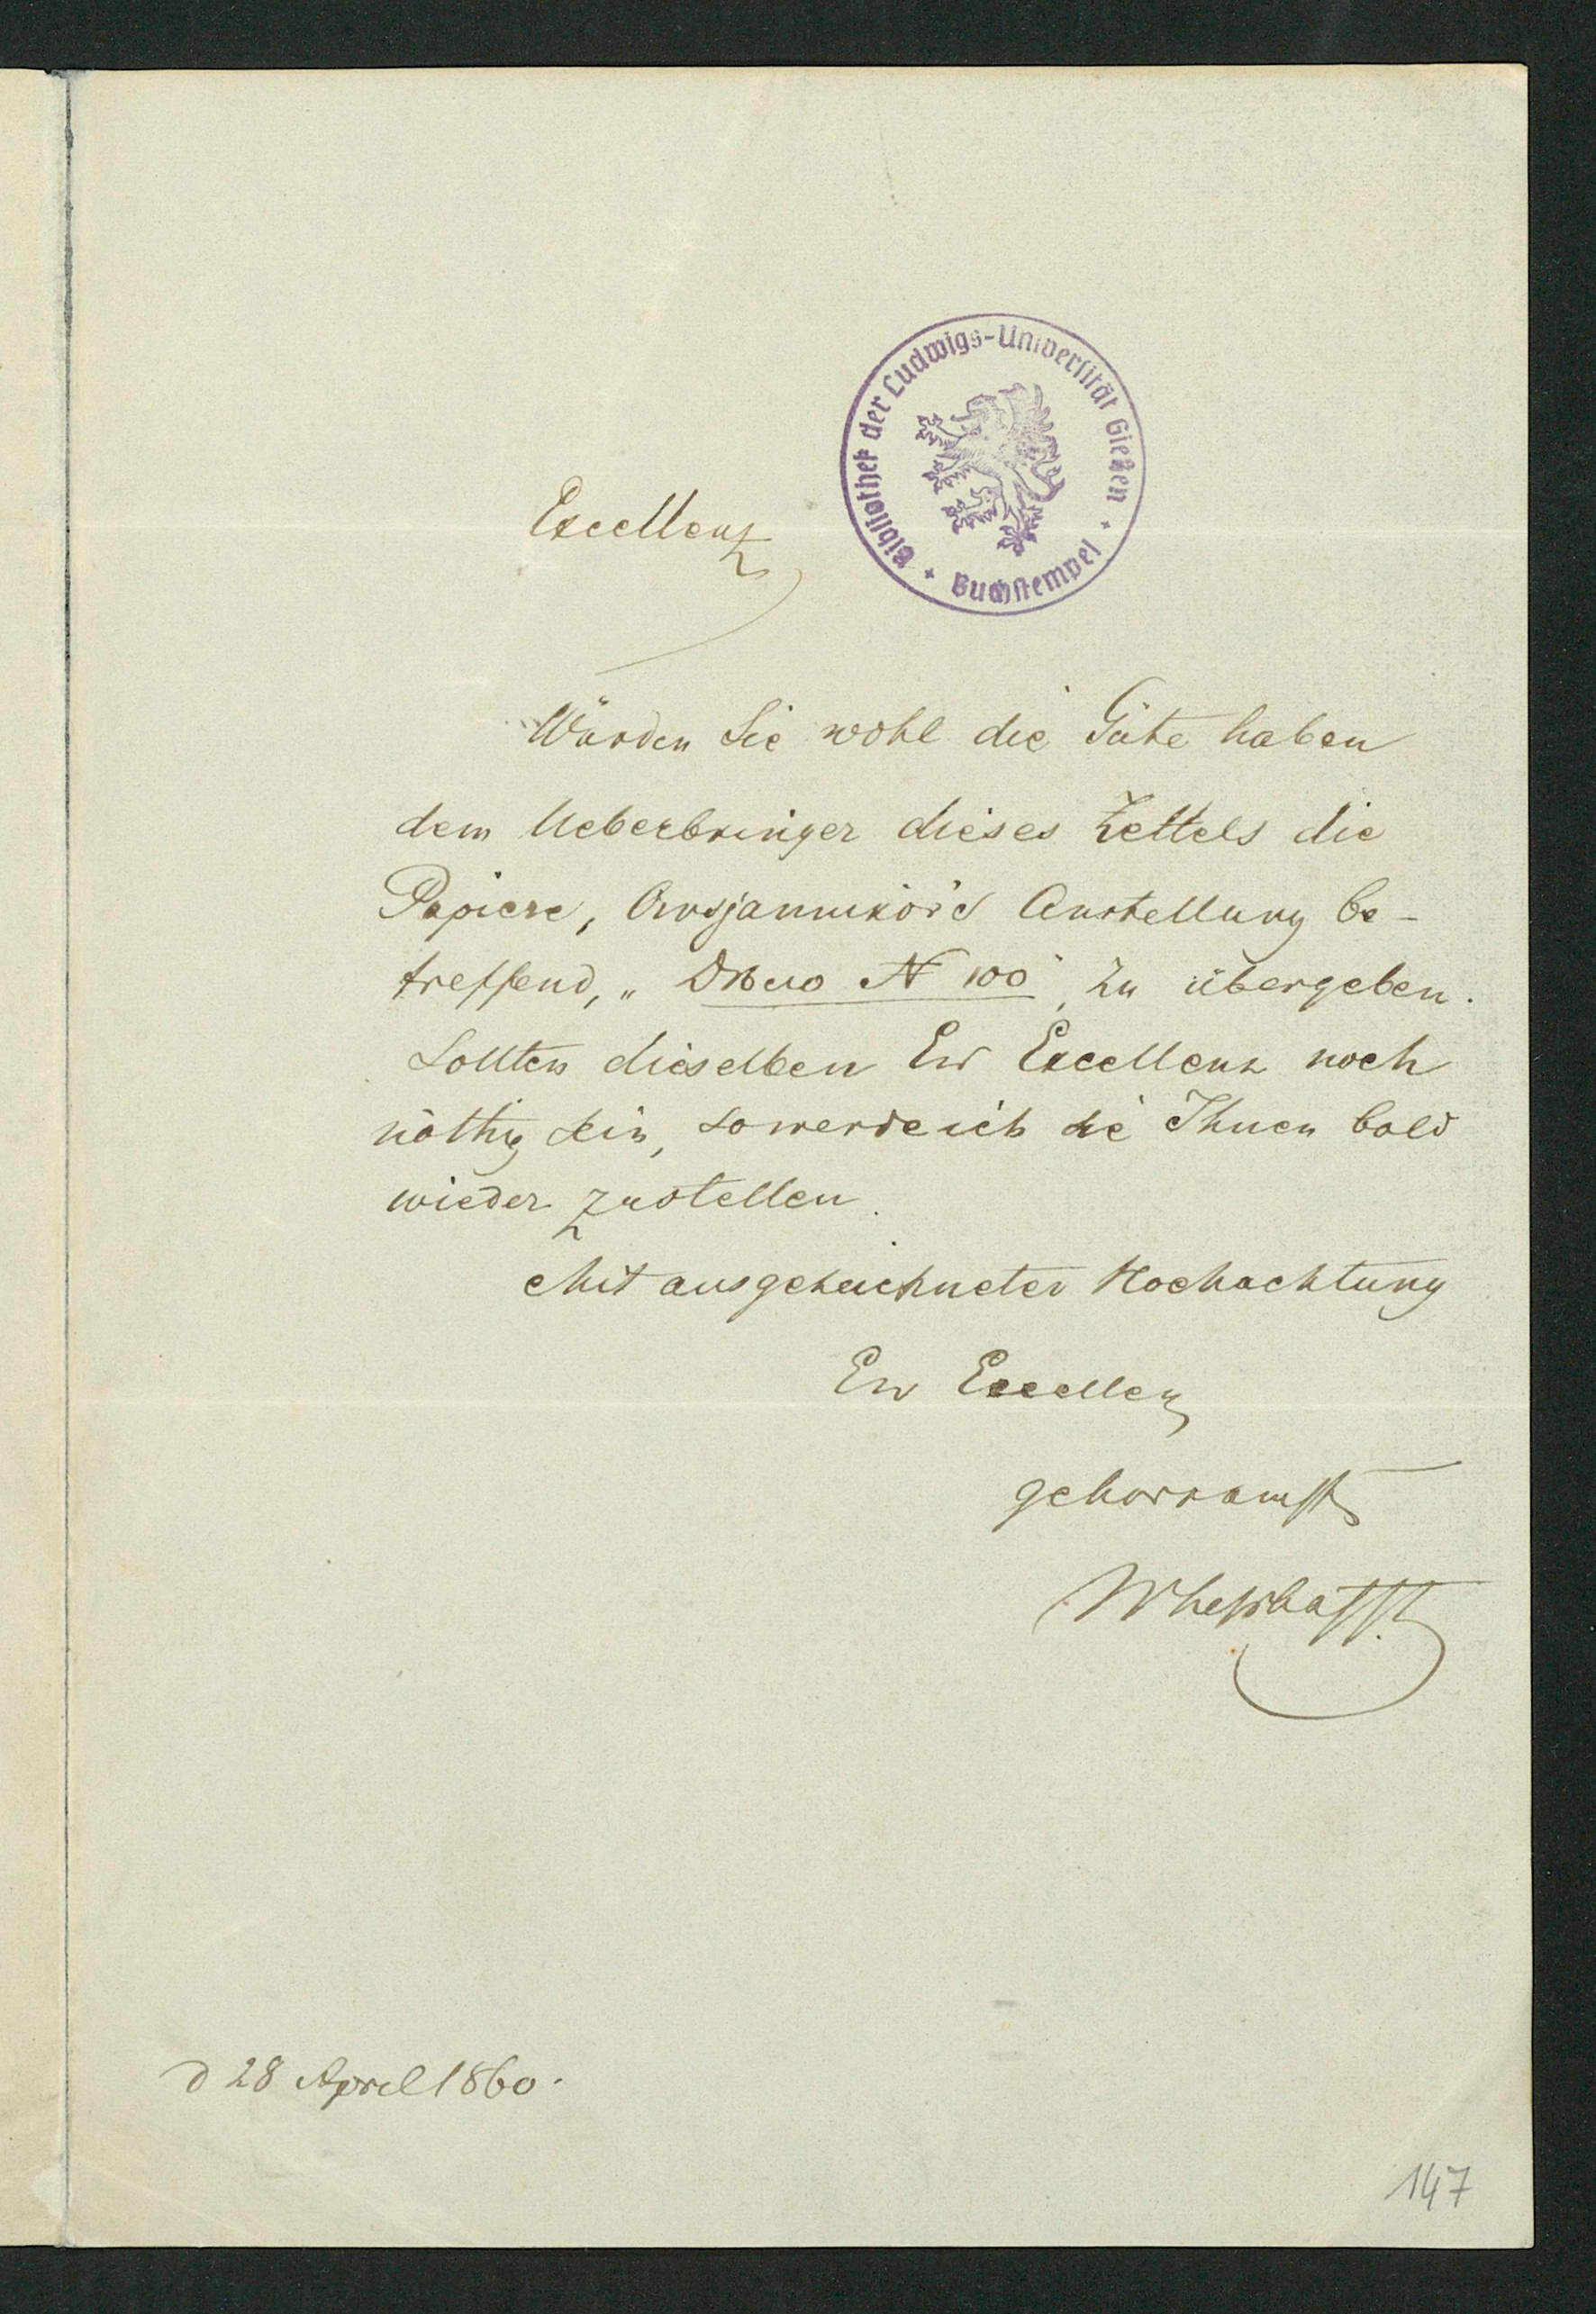 Bibliothek der Ludwigs-Universität Gießen + Buchstempel +
Excellenz
Würden Sie wohl die Güte haben
dem Ueberbringer dieses Zettels die
Papiere, Owsjannikow's Anstellung be-
treffend, „Дѣло N 100" zu übergeben.
Sollten dieselben Ew Excellenz noch
nöthig sein, so werde ich sie Ihnen bald
wieder zustellen.
Mit ausgezeichneter Hochachtung
Ew Excellenz
gehorsamst
d 28 April 1860.
147